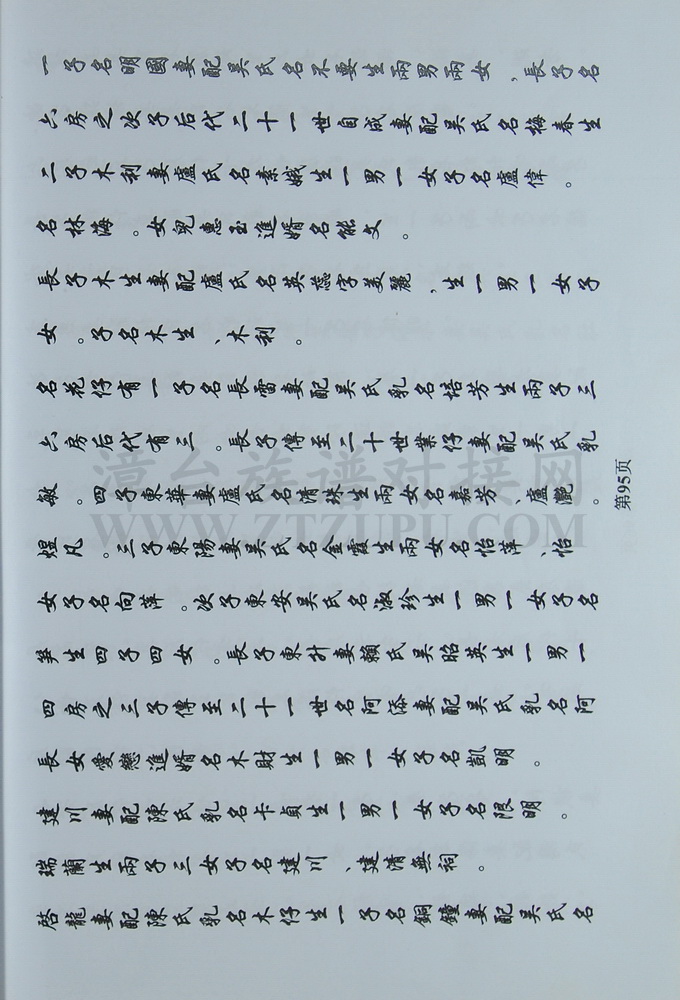 啓龍妻配陳氏乳名木仔生一子名銅鐘妻配吳氏名
瑞蘭生兩子三女子名建川、建清無祠。
建川妻配陳氏乳名卡貞生一男一女子名限明。
長女愛戀進婿名木財生一男一女子名凱明。
四房之三子傳至二十一世名阿添妻配吳氏乳名阿
笋生四子四女。長子東升妻賴氏吳昭英生一男一
女子名向萍。次子東安吳氏名淑珍生一男一女子名
煜凡。三子東陽妻吳氏名金霞生兩女名怡萍、怡
敏。四子東華妻盧氏名清珠生兩女名嘉芳、盧灔。
六房后代有三。長子傳至二十世業仔妻配吳氏乳
名花仔有一子名長雷妻配吳氏乳名培芳生兩子三
女。子名木生、木利。
長子木生妻配盧氏名英蕊字美麗,生一男一女子
名林海。女兒惠玉進婿名能文。
二子木利妻盧氏名素娥生一男一女子名盧偉。
六房之次子后代二十一世自成妻配吳氏名梅春生
一子名明國妻配吳氏名不要生兩男兩女,長子名
第95页
漳台族谱对接网
WWW.ZTZUPU.COM